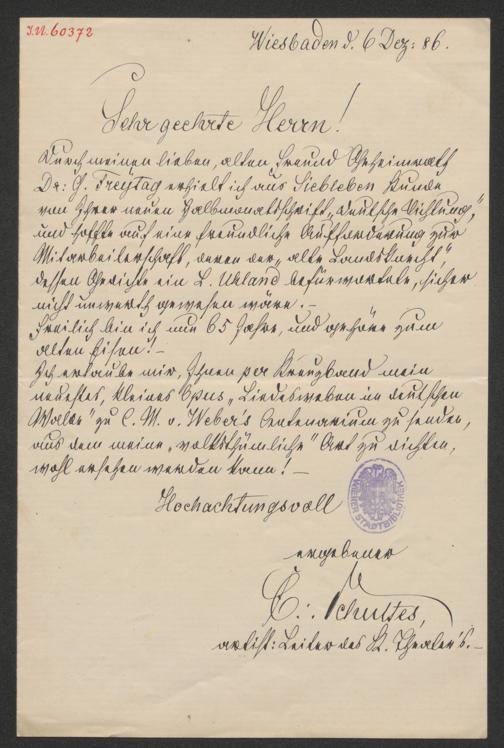 I.N. 60372
Wiesbaden d. 6 Dez: 86.
Sehr geehrte Herrn!
Durch meinen lieben, alten Freund Geheimrath
Dr: G. Freytag erhielt ich aus Siebleben Kunde
von Ihrer neuen Halbmonatsschrift „Deutsche Dichtung",
und hoffe auf eine freundliche Aufforderung zur
Mitarbeiterschaft, deren der „alte Landsknecht",
dessen Gedichte ein L. Uhland befürwortete, sicher
nicht unwerth gewesen wäre. –
Freilich bin ich nun 65 Jahre, und gehöre zum
alten Eisen! –
Ich erlaube mir, Ihnen per Kreuzband mein
neuestes, kleines Opus „Liedesweben im deutschen
Walde" zu C. M. v. Weber's Centenarium zu senden,
aus dem meine „volksthümliche" Art zu dichten,
wohl ersehen werden kann! –
Hochachtungsvoll
WIENER STADTBIBLIOTHEK
ergebener
C: Schultes,
artist: Leiter des St. Theater's. –